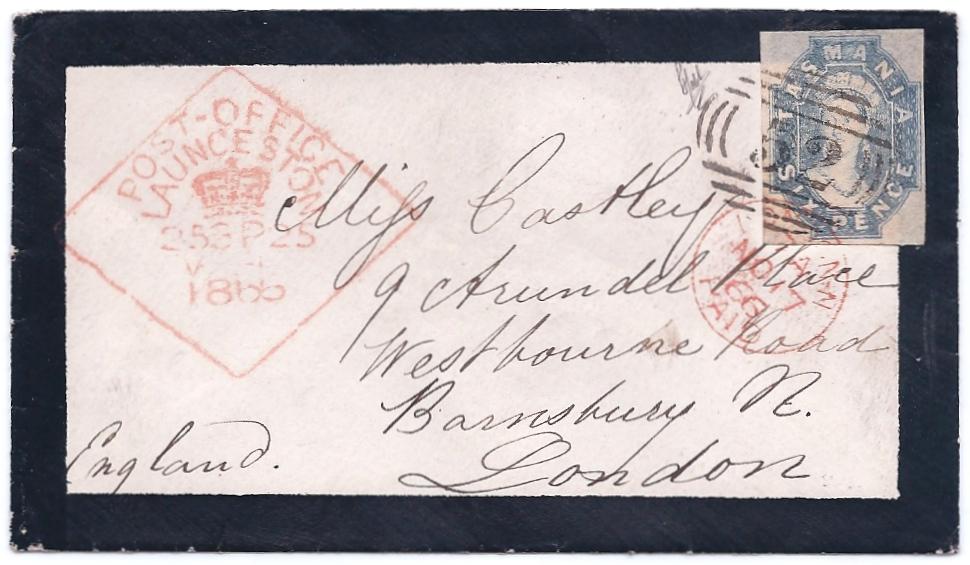 POST-OFFICE
LAUNCESTON
253 P 25
1865
TASMANIA
SIX PENCE
NO 7
PAID
Miss Castley
9 Arundel Place
Westbourne Road
Barnsbury N.
London
England.